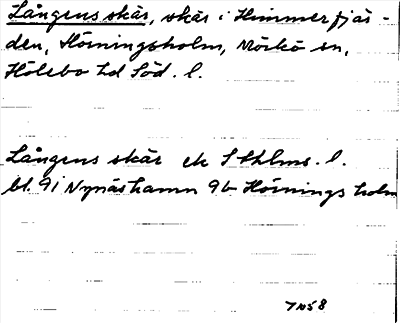 Långens skär, skär i Himmerfjär-
den, Hörningsholm, Mörkö sn,
Hölebo hd Söd. l.
Långens skär ek Sthlms. l.
bl. 91 Nynäshamn 9b Hörningsholm
7N58